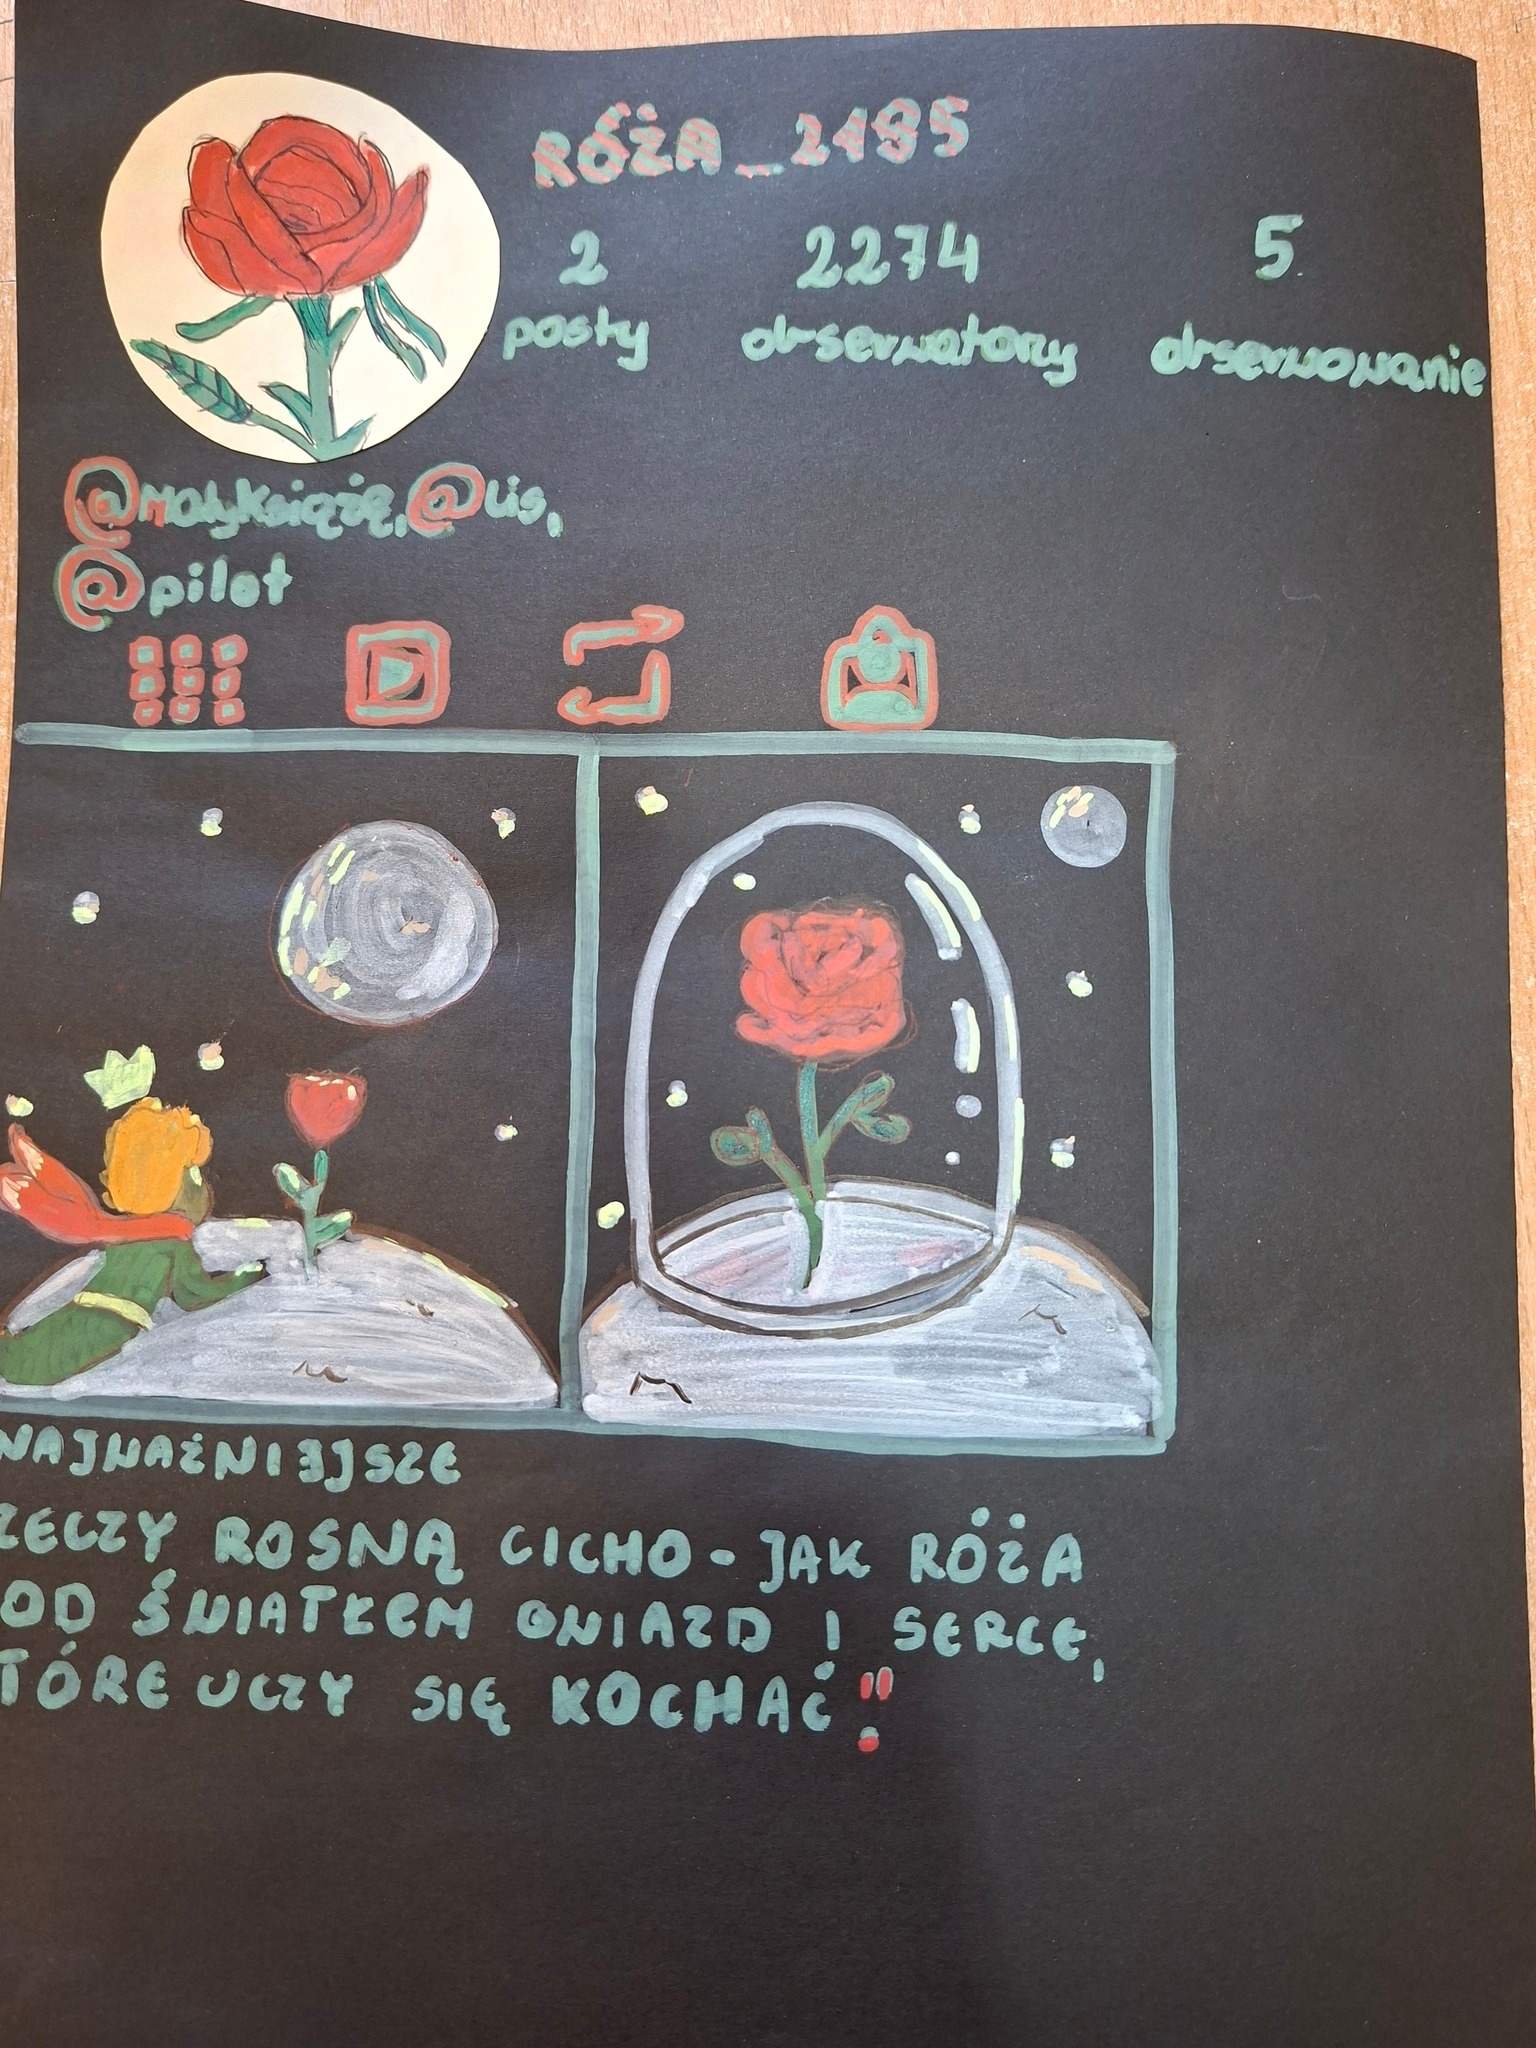 RÓŻA_2195
2 2274 5
posty obserwatorzy obserwowanie
@MałyKsiążę, @Lis,
@pilot
NAJWAŻNIEJSZE
RZECZY ROSNĄ CICHO - JAK RÓŻA
OD ŚWIATŁEM GWIAZD I SERCE,
TÓRE UCZY SIĘ KOCHAĆ"